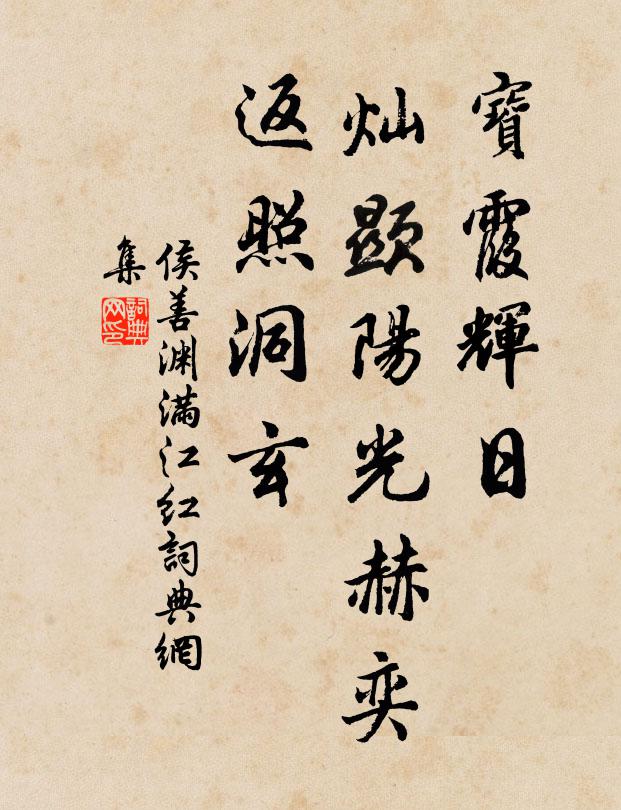 寶霞輝日
灿顯陽光赫奕
返照洞玄
侯善渊滿江红詞典網
集
詞典
网印